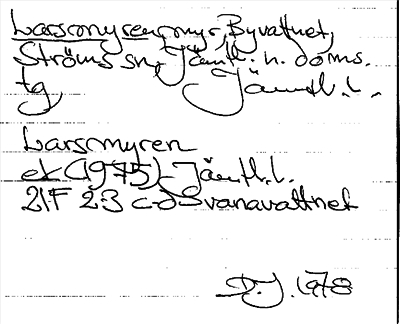 Larsmyren, myr, Byvattnet,
Ströms sn, Jämtl. n. doms.
tg, Jämtl. l.
Larsmyren
ek (1975) Jämtl. l.
21F 2-3 c-d Svanavattnet
D.J. 1978